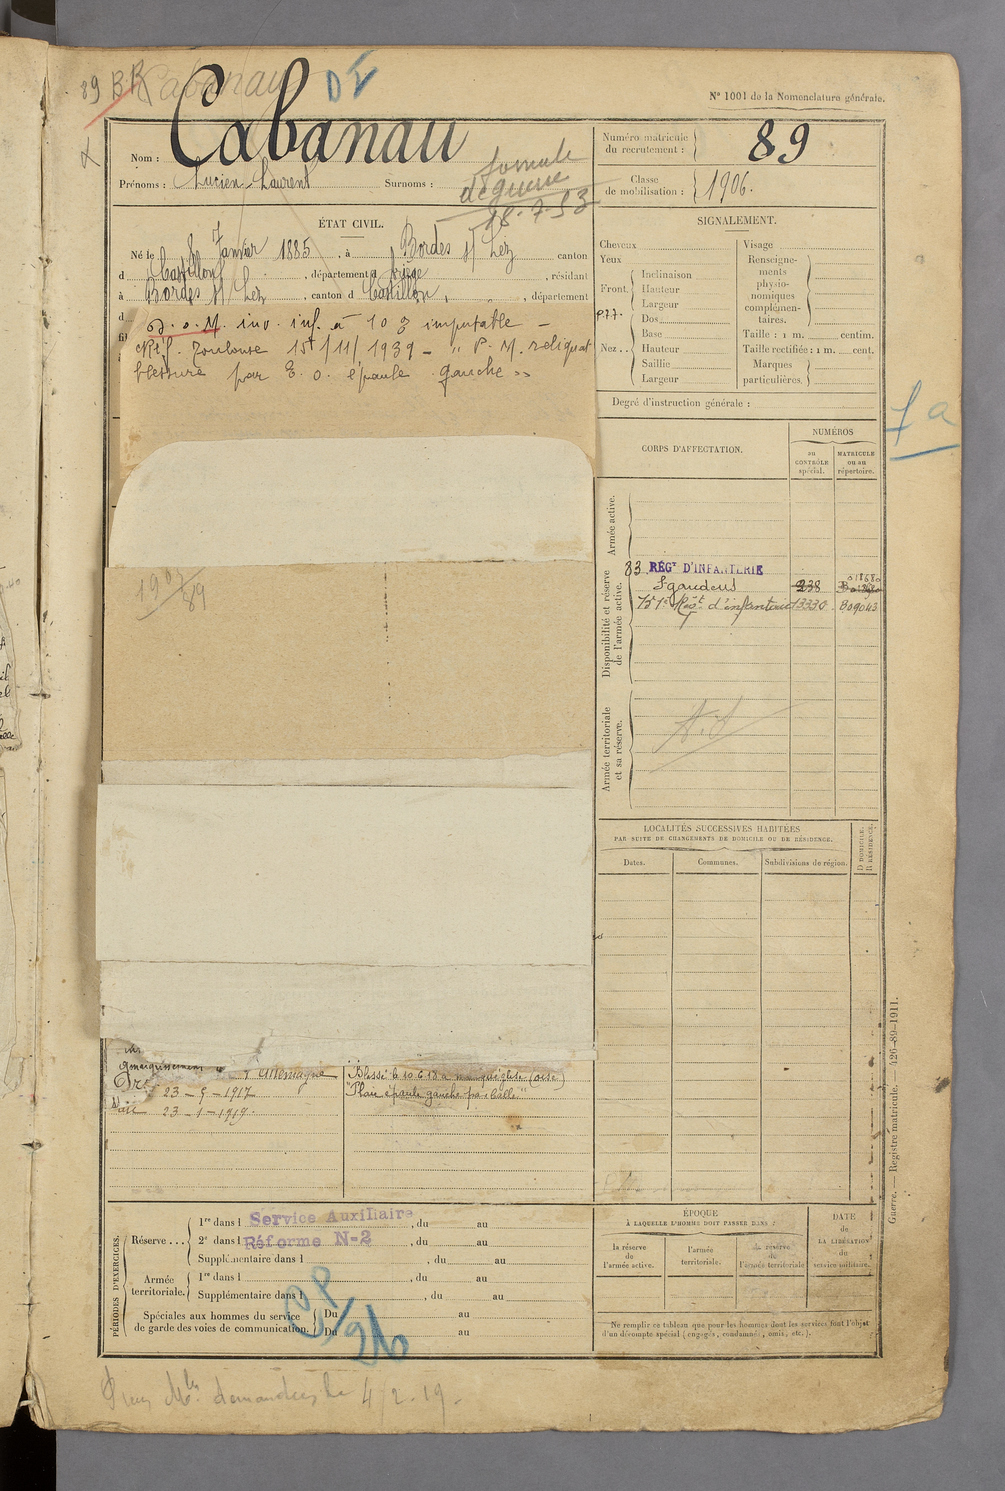 89 Cabanau
N° 1001 de la Nomenclature générale.
Nom : Cabanau
Prénoms : Lucien-Laurent Surnoms :
de guerre
18-7-53
Numéro matricule du recrutement : 89
Classe de mobilisation : 1906.
ÉTAT CIVIL.
Né le 8 Janvier 1885, à Bordes s/ Lez canton
d Castillon, département d Ariège, résidant
à Bordes s/ Lez, canton d Castillon, département
d
fil
S.D.M. inv. inf. à 10 % imputable –
Toulouse 15/11/1939 – " P. M. reliquat
blessure par E. O. épaule gauche "
SIGNALEMENT.
Cheveux
Yeux
Front. Inclinaison
Hauteur
Largeur
Nez.. Dos
Base
Hauteur
Saillie
Largeur
Visage
Renseignements physionomiques complémentaires.
Taille : 1 m. centim.
Taille rectifiée : 1 m. cent.
Marques particulières.
Degré d'instruction générale :
CORPS D'AFFECTATION.
NUMÉROS
au CONTRÔLE spécial.
MATRICULE ou au répertoire.
Armée active.
Disponibilité et réserve de l'armée active.
83 RÉGT D'INFANTERIE
St gaudens 238
d'infanterie 13330
Armée territoriale et sa réserve.
LOCALITÉS SUCCESSIVES HABITÉES
PAR SUITE DE CHANGEMENTS DE DOMICILE OU DE RÉSIDENCE.
Dates. Communes. Subdivisions de région.
D DOMICILE.
R RÉSIDENCE.
Allemagne
23-1-1919.
Blessé le
"Plaie épaule gauche par balle"
PÉRIODES D'EXERCICES.
Réserve... 1re dans l Service Auxiliaire, du au
2e dans l Réforme N-2, du au
Supplémentaire dans l, du au
Armée territoriale. 1re dans l, du au
Supplémentaire dans l, du au
Spéciales aux hommes du service de garde des voies de communication. Du au
Du au
ÉPOQUE
À LAQUELLE L'HOMME DOIT PASSER DANS :
la réserve de l'armée active.
l'armée territoriale.
la réserve de l'armée territoriale
DATE de LA LIBÉRATION du service militaire.
Ne remplir ce tableau que pour les hommes dont les services font l'objet
d'un décompte spécial (engagés, condamnés, omis, etc.).
Guerre. — Registre matricule. — 426-89-1911.
4/2-19.